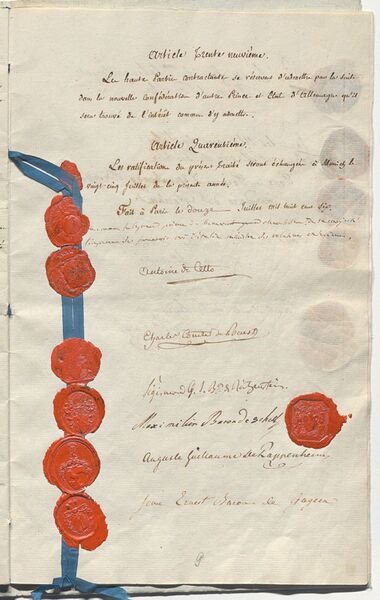 Article Trente neuvième.
Les hautes Parties contractantes se réservent d'admettre par la suite
dans la nouvelle Confédération d'autres Princes et Etats d'Allemagne qu'il
sera trouvé de l'intérêt commun d'y admettre.
Article Quarantième.
Les ratifications du présent Traité seront échangées à Munich le
vingt cinq Juillet de la présente année.
Fait à Paris le douze Juillet mil huit cent six
Antoine de Cetto
Charles Comte de Beust
Sigismond G. J. B. de Reitzenstein
Maximilien Baron de
Auguste Guillaume de Rappenheim
Jean Ernest Baron de Gagern
9